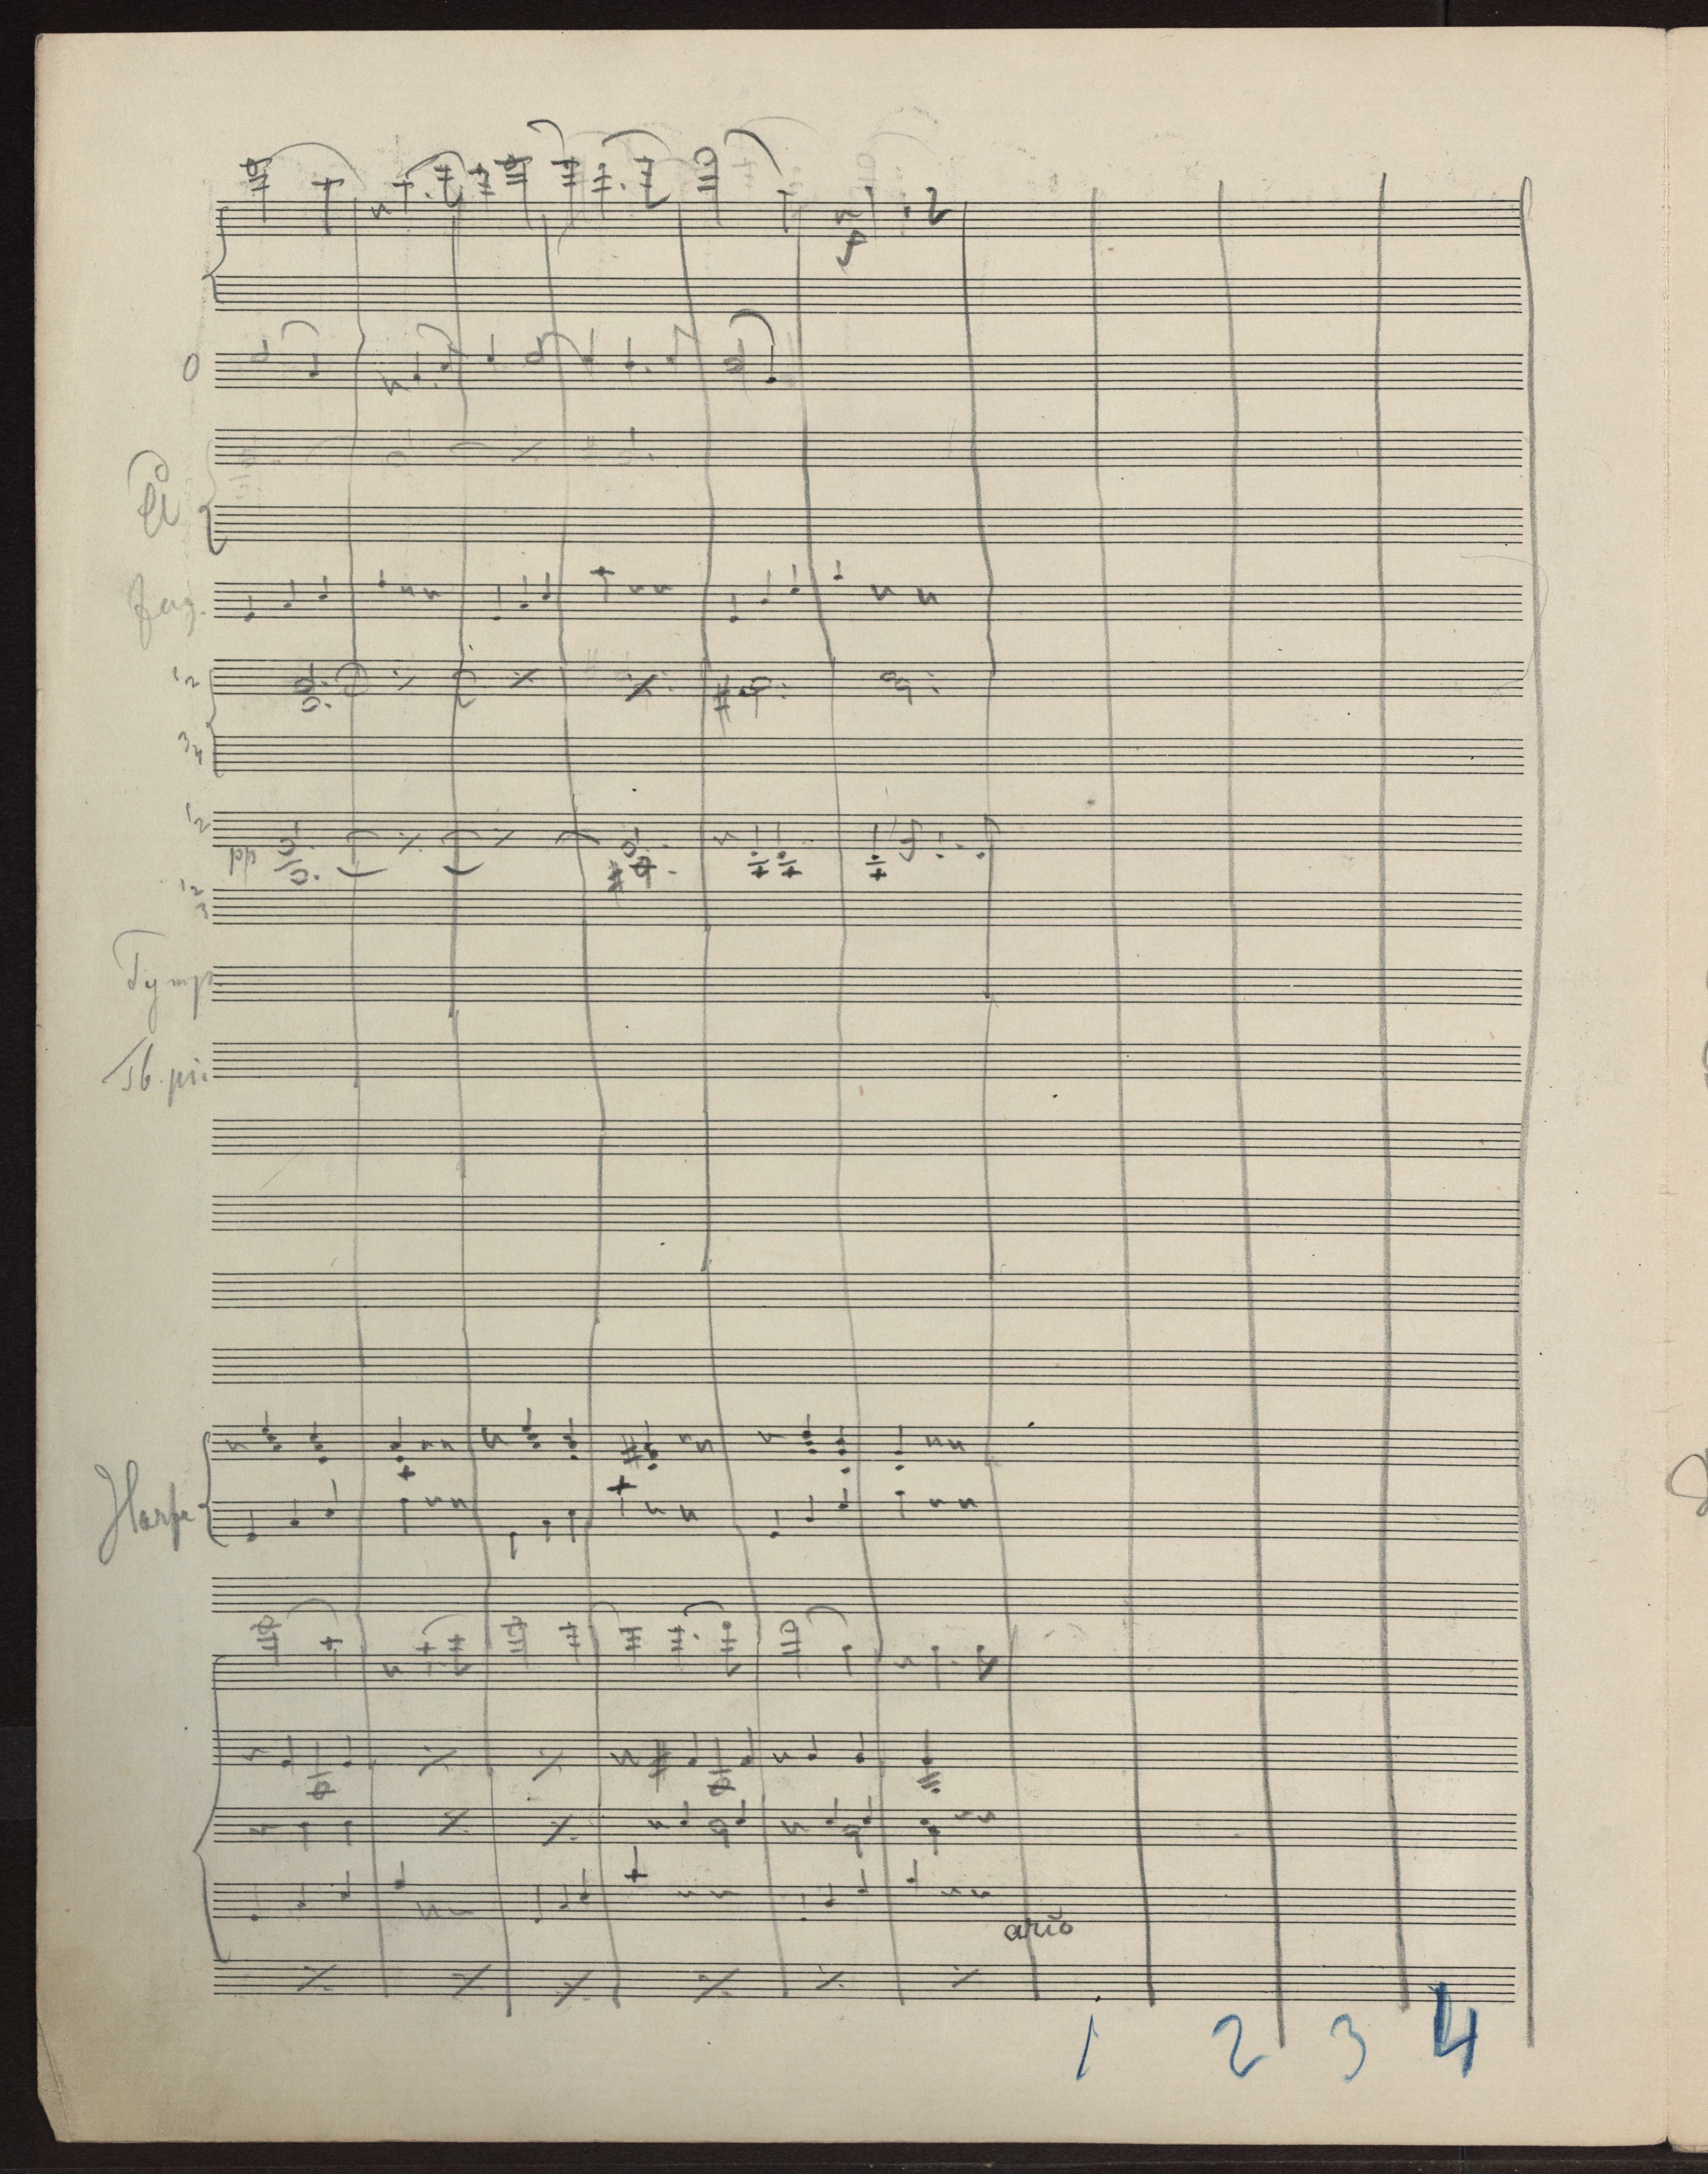 O
Cl
Fag.
12
34
12
pp
12
3
Tymp
Harfe
ario
1 2 3 4